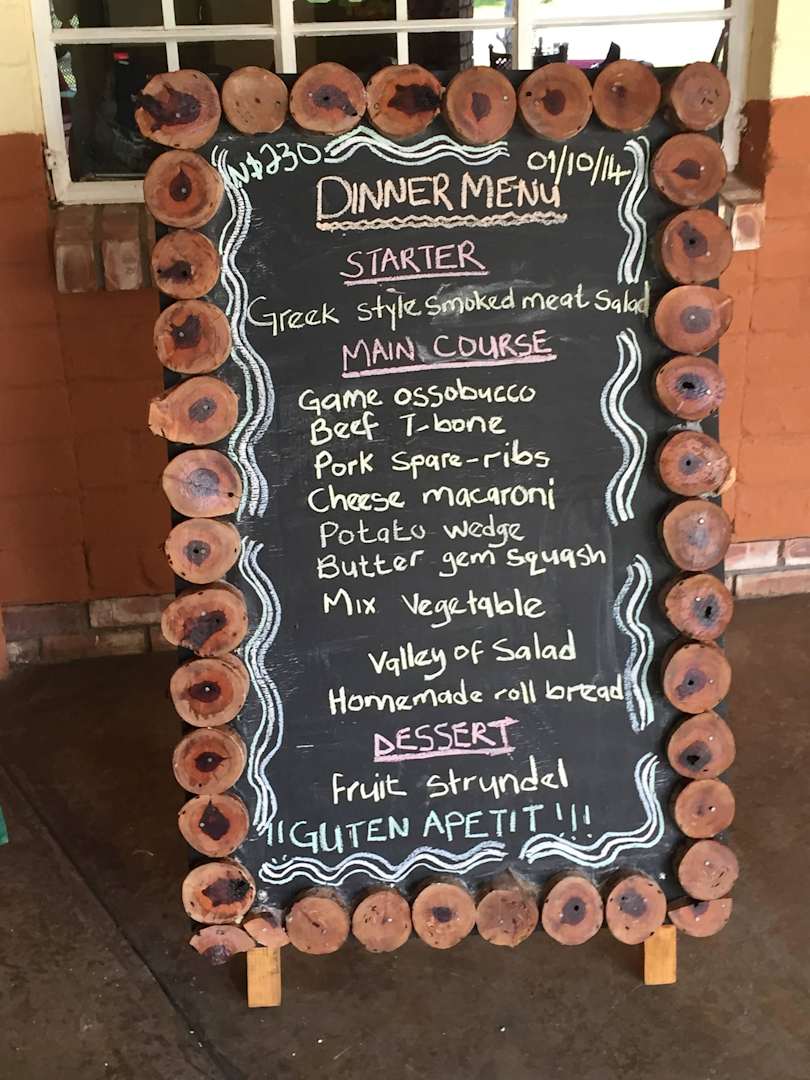 N$230
01/10/14
DINNER MENU
STARTER
Greek style smoked meat Salad
MAIN COURSE
Game ossobucco
Beef T-bone
Pork Spare-ribs
Cheese macaroni
Potato wedge
Butter gem squash
Mix Vegetable
Valley of Salad
Homemade roll bread
DESSERT
Fruit Strundel
!!GUTEN APETIT!!!